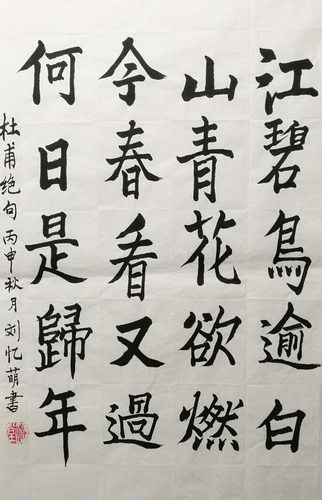 江碧鳥逾白
山青花欲燃
今春看又過
何日是歸年
杜甫绝句丙申秋月刘忆萌書